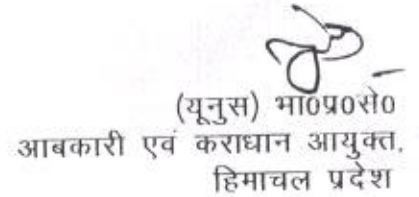 (यूनुस) भा0प्र0से0
आबकारी एवं कराधान आयुक्त,
हिमाचल प्रदेश